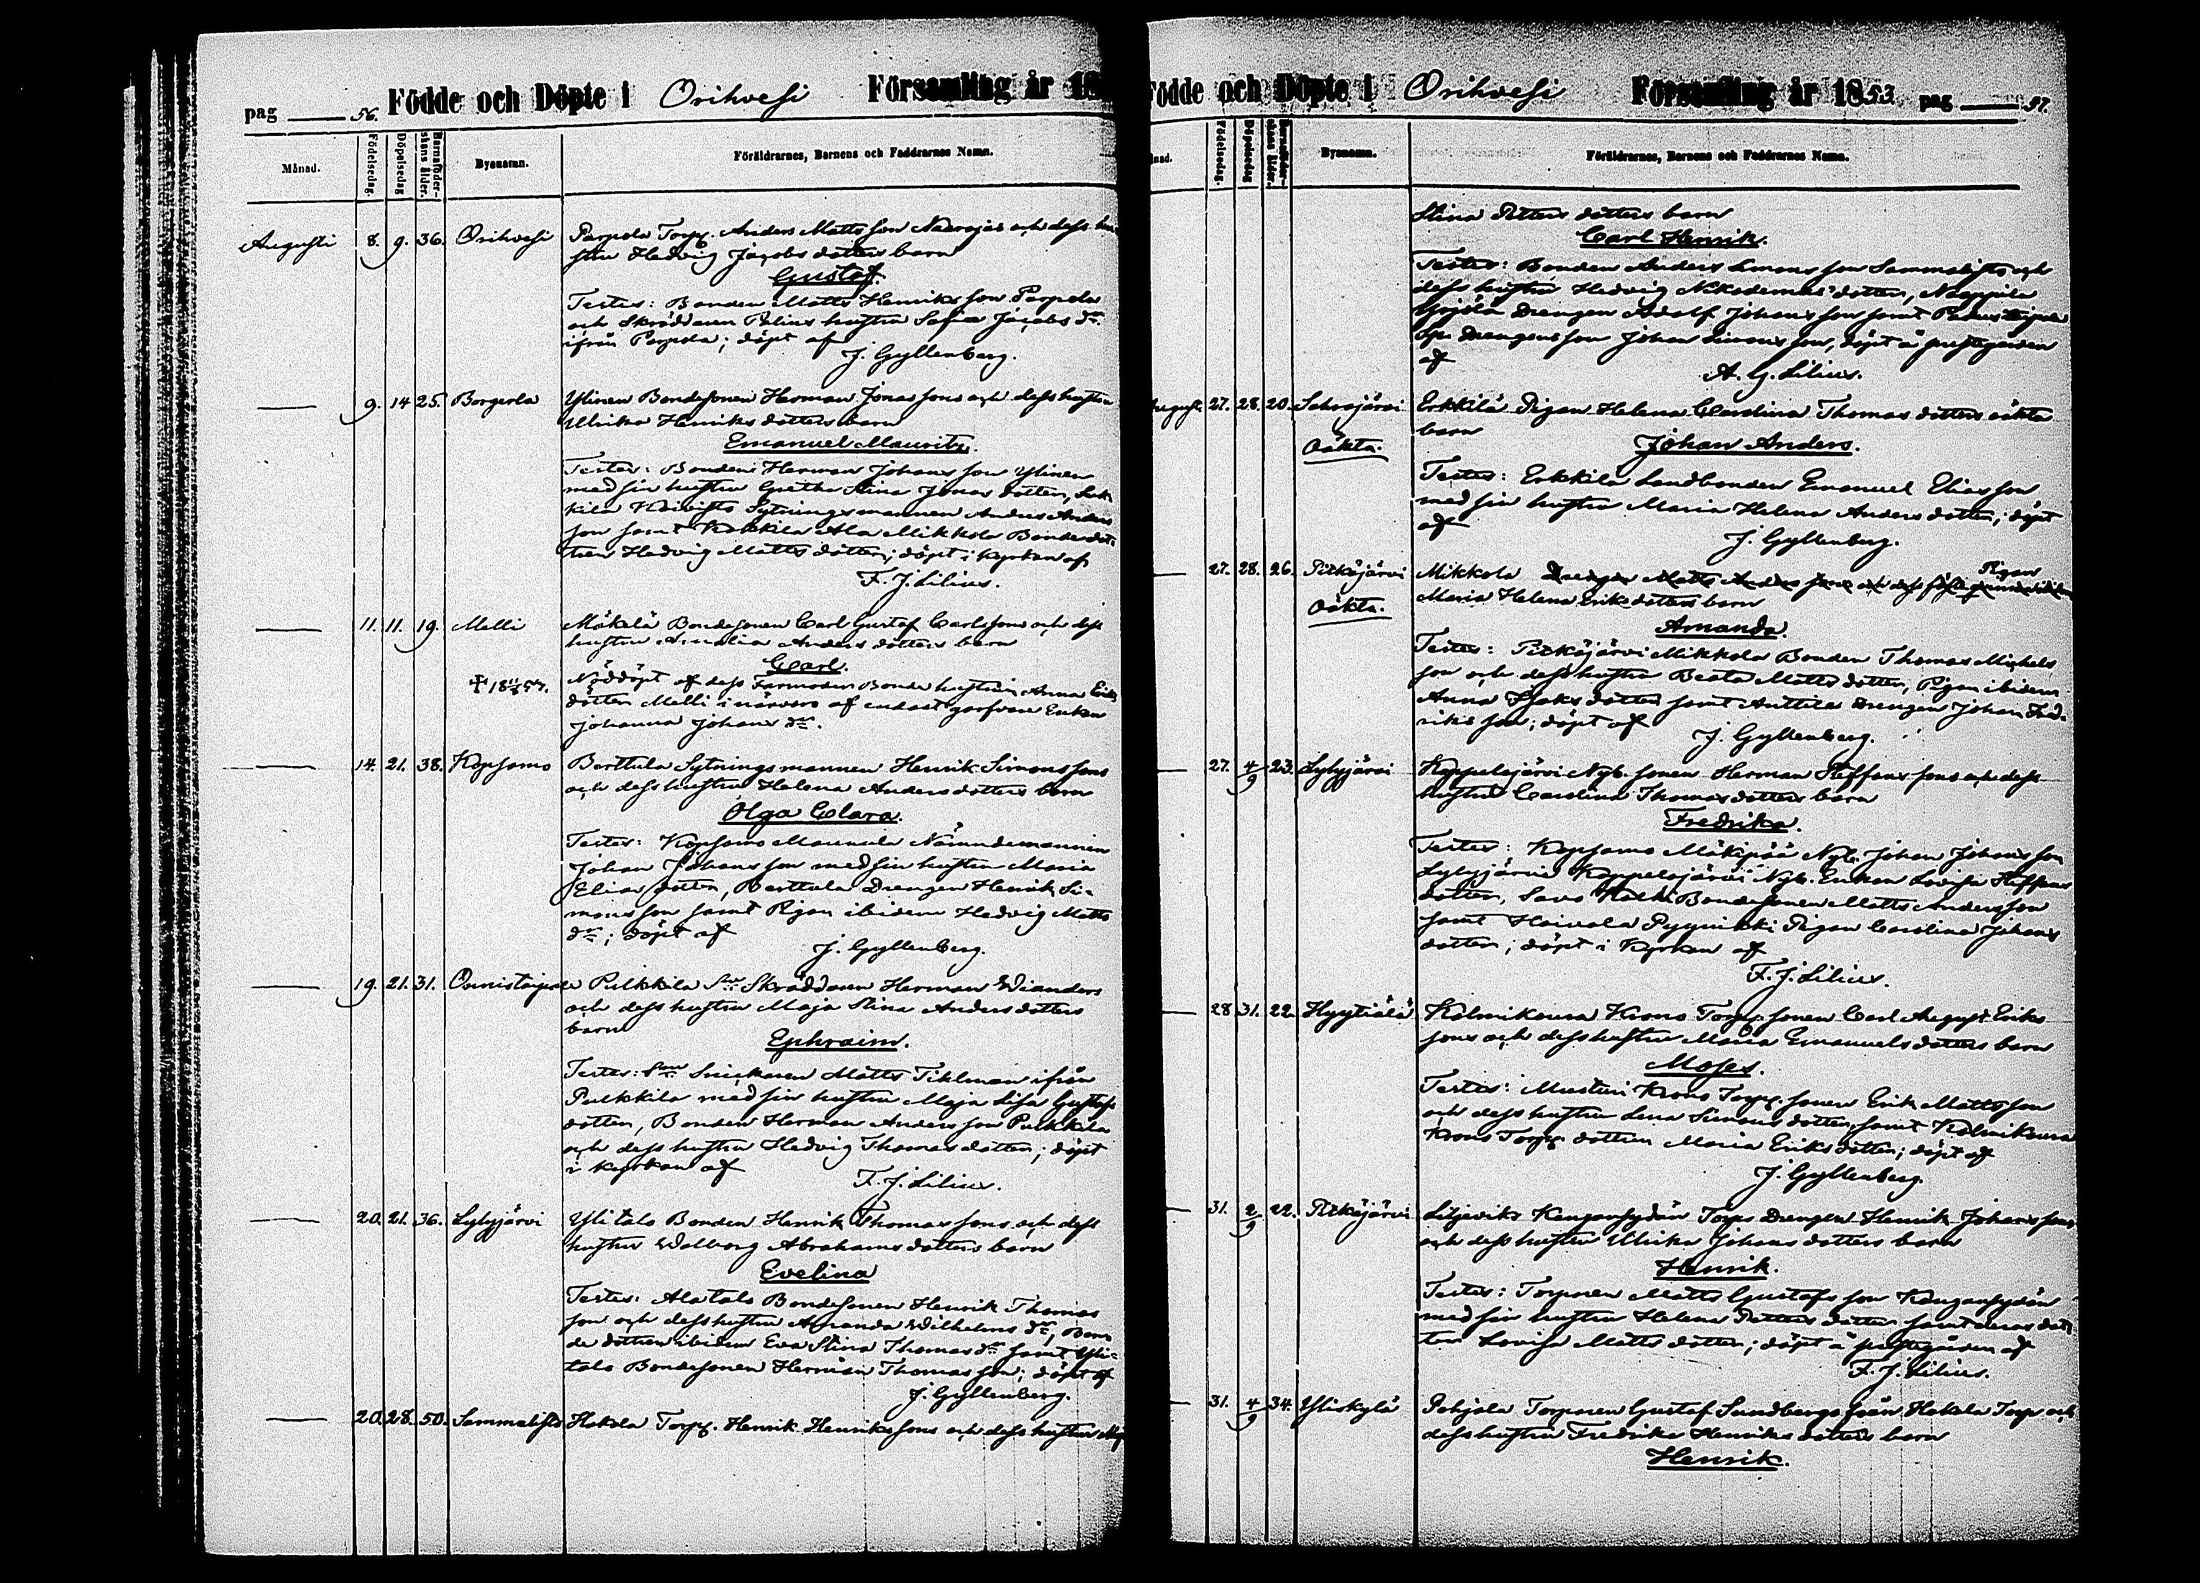 pag 56. Födde och Döpte i Orihvesi Församling år 18
Månad. Födelsedag. Döpelsedag Barnaföderskans ålder. Bysnamn. Föräldrarnes, Barnens och Faddrarnes Namn.
Augusti 8. 9. 36. Orihvesi Perpola Torp. Anders Mattsson och dess hu-
stru Hedvig Jacobs dotters barn
Gustaf.
Testes: Bonden Matts Henriksson Perpola
och Skräddaren hustru Sofia Jacobs dr.
ifrån Perpola; döpt af
J. Gyllenberg.
9. 14 25. Borgerla Ylinen Bondesonen Herman Jonassons och dess hustru
Ulrika Henriks dotters barn
Emanuel Mauritz.
Testes: Bonden Herman Johansson Ylinen
med sin hustru Gretha Stina Jonas dotter,
kila Sytningsmannen Anders Anders
son samt Ala Mikkola Bondedot-
tren Hedvig Matts dotter; döpt i kyrkan af
F. J. Lilius.
11. 11. 19. Melli Mäkelä Bondesonen Carl Gustaf Carlssons och dess
hustru Amalia Anders dotters barn
Carl.
Nöddöpt af dess Farmoder Bonde hustrun Anna Eriks
dotter Melli i närvaro af endast Enkan
Johanna Johans dr.
14. 21. 38. Kopsamo Berttula Sytningsmannen Henrik Simonssons
och dess hustru Helena Anders dotters barn
Olga Clara.
Testes: Kopsamo Nämndemannen
Johan Johansson med sin hustru Maria
Elias dotter, Berttula Drengen Henrik Si-
monsson samt Pigan ibidem Hedvig Matts
dr; döpt af
J. Gyllenberg.
19. 21. 31. Onnistaipale Pulkkila Skräddaren Herman Wianders
och dess hustru Maja Stina Anders dotters
barn
Ephraim.
Testes: Snickaren Matts Tihlman ifrån
Pulkkila med sin hustru Maja Lisa Gustafs
dotter, Bonden Herman Andersson Pulkkila
och dess hustru Hedvig Thomas dotter; döpt
i kyrkan af
F. J. Lilius.
20. 21. 36. Lylyjärvi Ylitalo Bonden Henrik Thomassons och dess
hustru Walborg Abrahams dotters barn
Evelina
Testes: Alatalo Bondesonen Henrik Thomas
son och dess hustru Amanda Wilhelms dr, Bon-
de dottren ibidem Eva Stina Thomas dr samt Yli-
talo Bondesonen Herman Thomasson; döpt af
J. Gyllenberg.
20. 28. 50. Sammalisto Hakola Torp. Henrik Henrikssons och dess hustru
Födde och Döpte i Orihvesi Församling år 1853. pag 57.
Födelsedag. Döpelsedag Barnaföderskans ålder. Bysnamn. Föräldrarnes, Barnens och Faddrarnes Namn.
Stina Petters dotters barn
Carl Henrik.
Testes: Bonden Anders Simonsson Sammalisto och
dess hustru Hedvig Nikodemus dotter,
Yrjölä Drengen Adolf Johansson samt
Drengen Johan Simonsson, döpt å prestgården
af
A. G. Lilius.
Augusti 27. 28. 20. Sahrajärvi Erkkilä Pigan Helena Carolina Thomas dotters oäkta
Oäkta. barn
Johan Anders.
Testes: Erkkilä Landbonden Emanuel Eliasson
med sin hustru Maria Helena Anders dotter; döpt
af
J. Gyllenberg.
27. 28. 26. Pitkäjärvi Mikkola Pigan
Oäkta. Maria Helena Eriks dotters barn
Amanda.
Testes: Pitkäjärvi Mikkola Bonden Thomas Michels
son och dess hustru Beata Matts dotter, Pigan ibidem
Anna Isaks dotter samt Anttila Drengen Johan Fred-
riksson; döpt af
J. Gyllenberg.
27. 4/9 23. Lylyjärvi Koppelojärvi Nyb. sonen Herman Steffanssons och dess
hustru Carolina Thomas dotters barn
Fredrika.
Testes: Kopsamo Mäkipää Nyb. Johan Johansson
Lylyjärvi Koppelojärvi Nyb. Enkan Lovisa Steffans
dotter, Savo Bondesonen Matts Andersson
samt Hoivala Pyynikki Pigan Carolina Johans
dotter; döpt i kyrkan af
F. J. Lilius.
28 31. 22. Hyytiälä Kolmikoura Krono Torp. sonen Carl August Eriks
sons och dess hustru Maria Emanuels dotters barn
Moses.
Testes: Krono Torp. sonen Erik Mattsson
och dess hustru Lena Simons dotter, samt Kolmikoura
Krono Torp. dottren Maria Eriks dotter; döpt af
J. Gyllenberg
31. 2/9 22. Pitkäjärvi Torps Drengen Henrik Johanssons
och dess hustru Ulrika Johans dotters barn
Henrik.
Testes: Torparen Matts Gustafsson
med sin hustru Helena Petters dotter samt deras dot-
ter Lovisa Matts dotter; döpt å prestgården af
F. J. Lilius.
31. 4/9 34. Yliskylä Pohjola Torparen Gustaf Sundbergs från Hakala Torp och
dess hustru Fredrika Henriks dotters barn
Henrik.